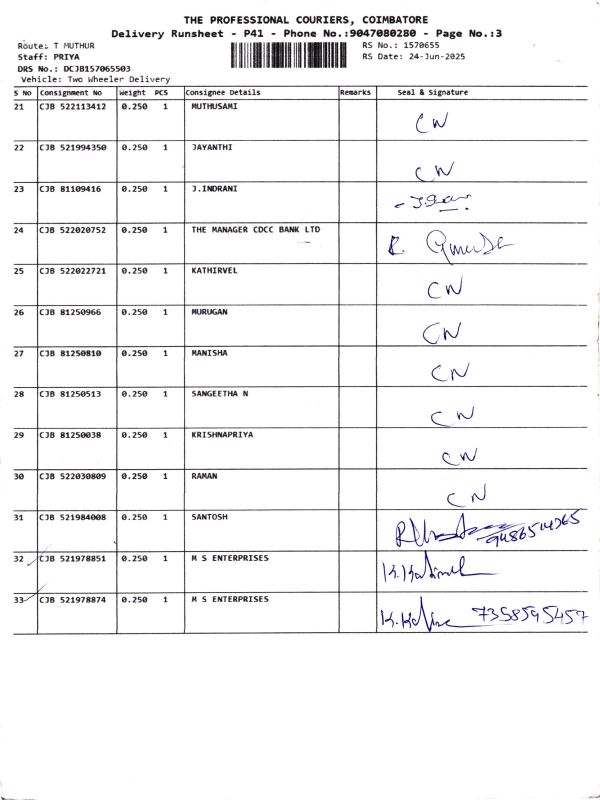 THE PROFESSIONAL COURIERS, COIMBATORE
Delivery Runsheet - P41 - Phone No.:9047080280 - Page No.:3
Route: T MUTHUR
RS No.: 1570655
Staff: PRIYA
RS Date: 24-Jun-2025
DRS No.: DCJB157065503
Vehicle: Two Wheeler Delivery
S No Consignment No Weight PCS Consignee Details Remarks Seal & Signature
21 CJB 522113412 0.250 1 MUTHUSAMI CN
22 CJB 521994350 0.250 1 JAYANTHI CN
23 CJB 81109416 0.250 1 J.INDRANI
24 CJB 522020752 0.250 1 THE MANAGER CDCC BANK LTD R.
25 CJB 522022721 0.250 1 KATHIRVEL CN
26 CJB 81250966 0.250 1 MURUGAN CN
27 CJB 81250810 0.250 1 MANISHA CN
28 CJB 81250513 0.250 1 SANGEETHA N CN
29 CJB 81250038 0.250 1 KRISHNAPRIYA CN
30 CJB 522030809 0.250 1 RAMAN CN
31 CJB 521984008 0.250 1 SANTOSH
32 CJB 521978851 0.250 1 M S ENTERPRISES
33 CJB 521978874 0.250 1 M S ENTERPRISES 7358595457